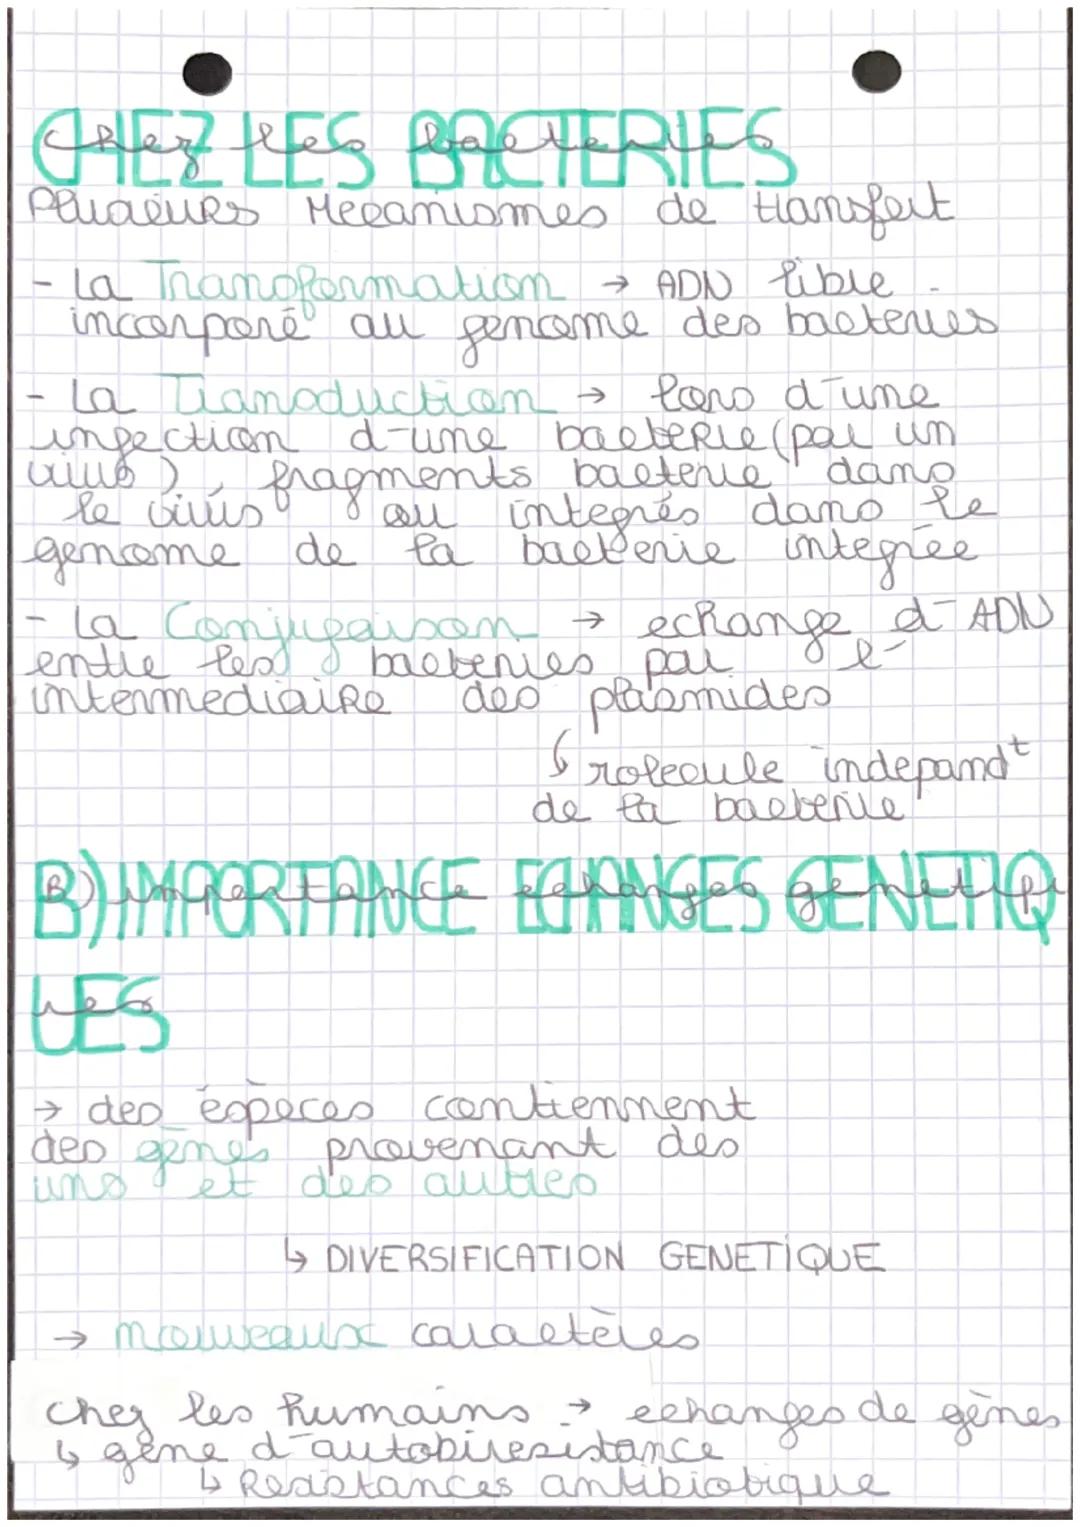 CHEZ LES BACTERIES
Plusieurs Mecanismes de transfert
- La Transformation → ADN libre
incorporé au genome des bacteries
- La Transduction → lors d'une
infection d'une bacterie (par un
virus), fragments bacterie dans
le virus ou integrés dans le
genome de la bacterie integrée
- La Conjugaison → echange d'ADN
entre les bacteries par l'
intermediaire des plasmides
↳ molecule independt
de la bacterie
B) IMPORTANCE ECHANGES GENETIQ
UES
→ des espèces contiennent
des gènes provenant des
uns et des autres
↳ DIVERSIFICATION GENETIQUE
→ nouveaux caractères
chez les humains → echanges de gènes
↳ gène d'autobiresistance
↳ Resistances antibiotique